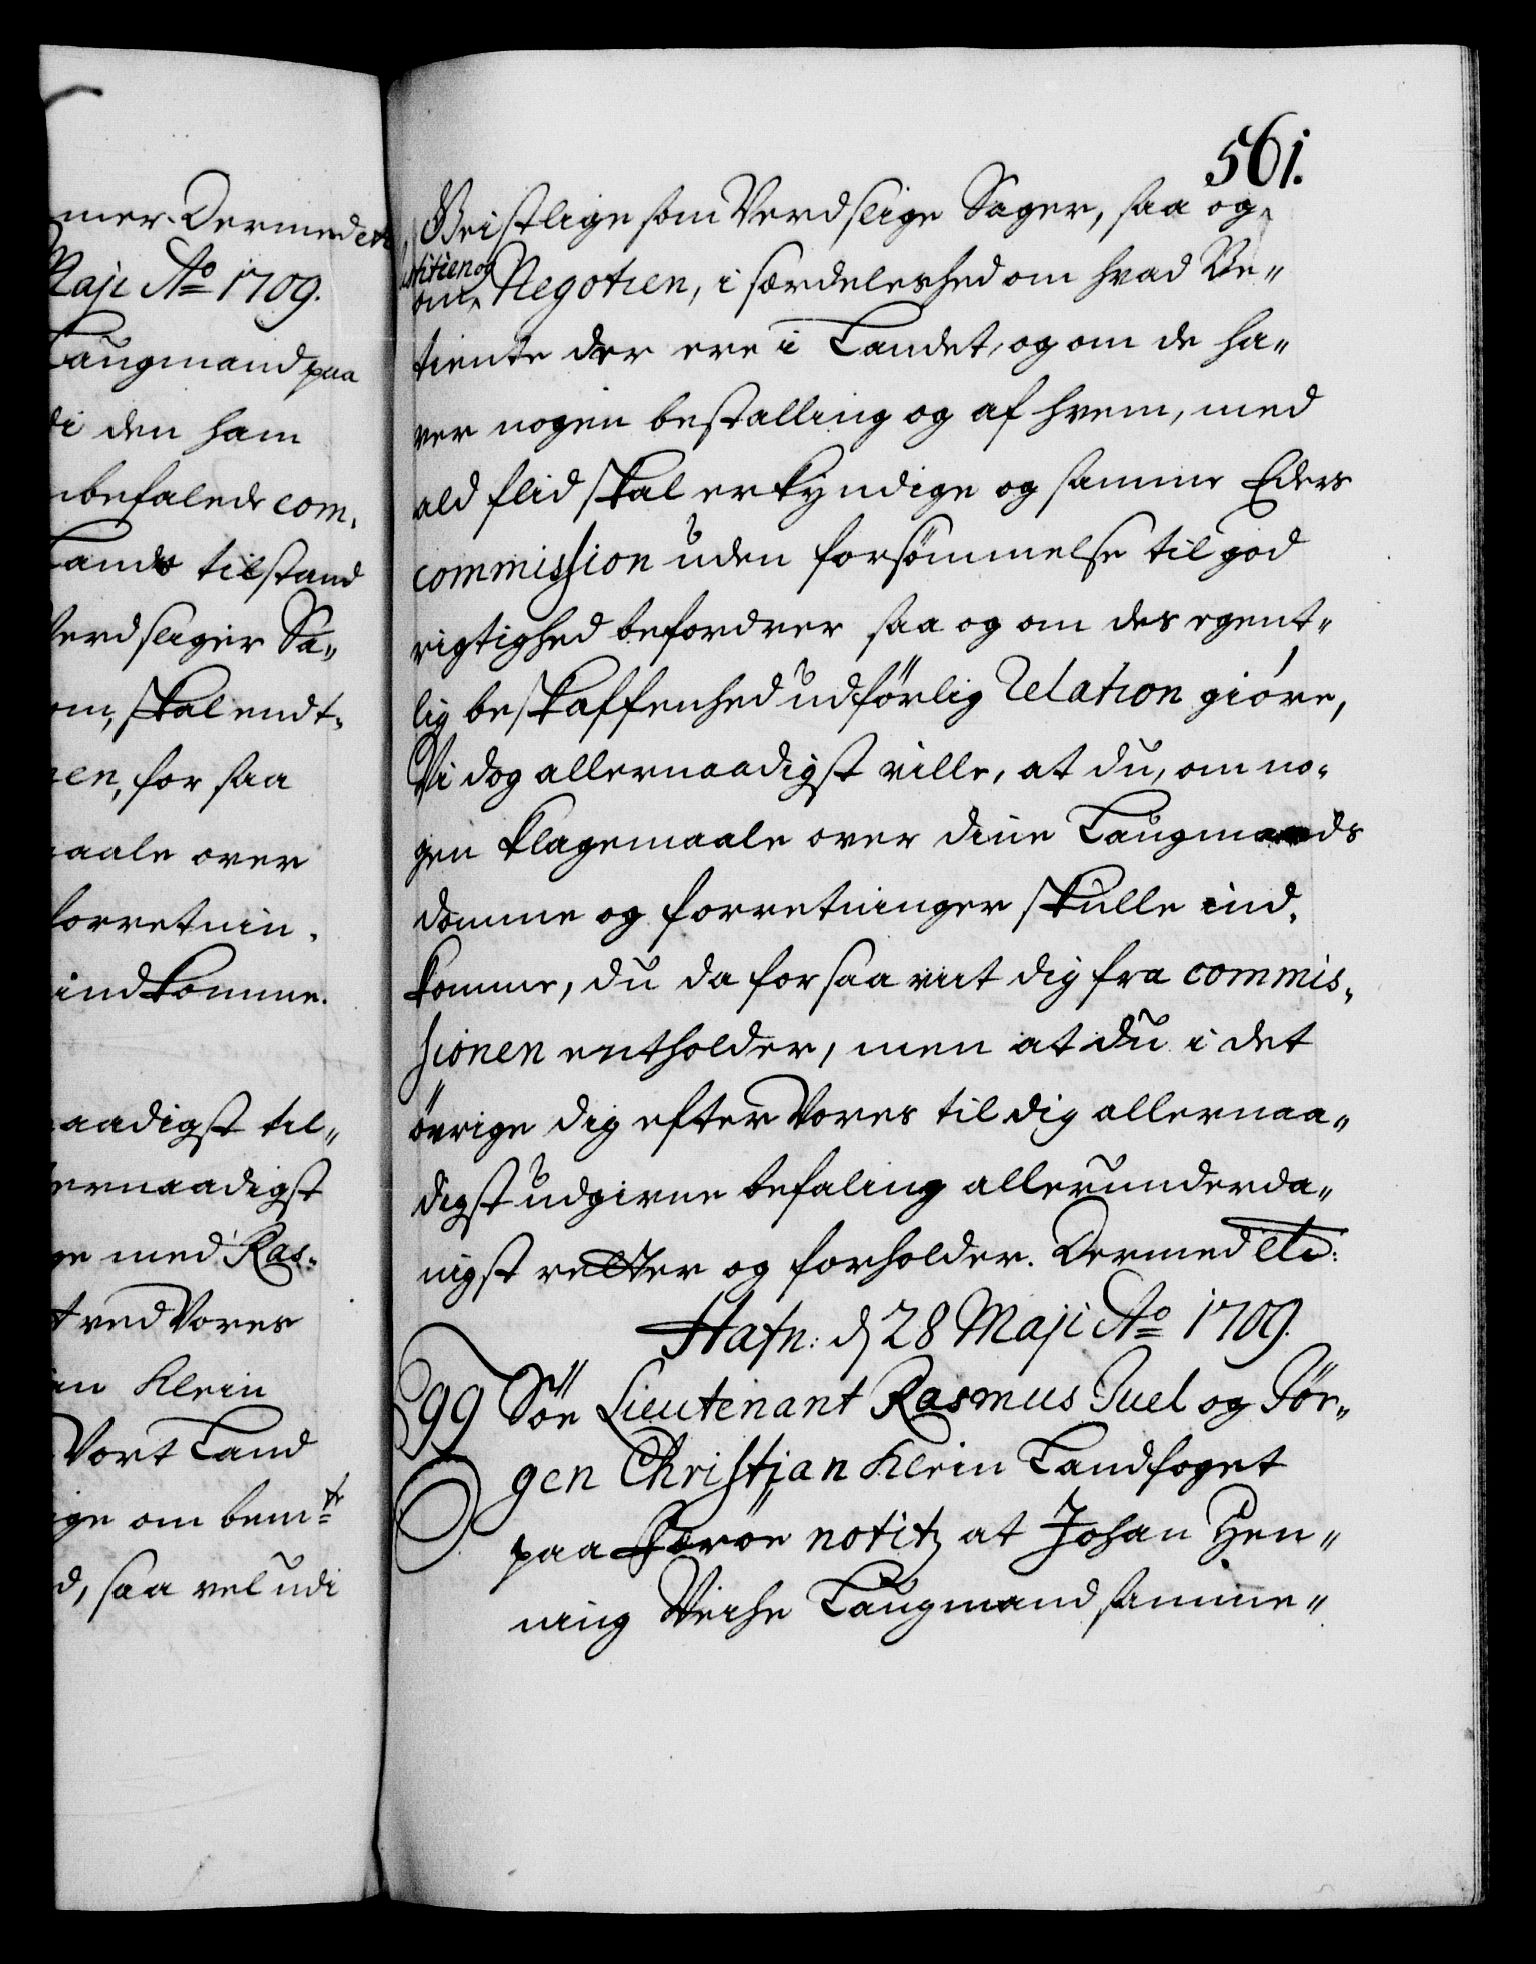 mer. Dermed etc
Maji Ao 1709.
Laugmand paa
di den ham
nbefalede com,
Lands tilstand
Verdslige Sa„
om, skal endt„
nen, for saa
maale over
forretnin„
indkomme.
naadigst til„
lernaadigst
ge med Ras„
t ved Vores
an Klein
Vort Land
ige om bemte
d, saa vel udi
561.
Geistlige som Verdslige Sager, saa og
justitien og
om Negotien, i særdeleshed om hvad Be„
tiente der ere i Landet, og om de ha„
ver nogen bestalling og af hvem, med
ald flid skal erkyndige og samme Eders
commission uden forsömmelse til god
rigtighed befordrer saa og om des egent„
lig beskaffenhed udförlig Relation giöre,
Vi dog allernaadigst ville, at du, om no„
gen klagemaale over dine Laugmands
domme og forretninger skulle ind„
komme, du da forsaavit dig fra commis„
sionen entholder, men at du i det
övrige dig efter Vores til dig allernaa„
digst udgivne befaling allerunderda„
nigst retter og forholder. Dermed etc:
Hafn: d 28 Maji Ao 1709.
99 Söe Lieutenant Rasmus Juel og Jör„
gen Christian Klein Landfoget
paa Færöe notitz at Johan Hen„
ning Weihe Laugmand samme„